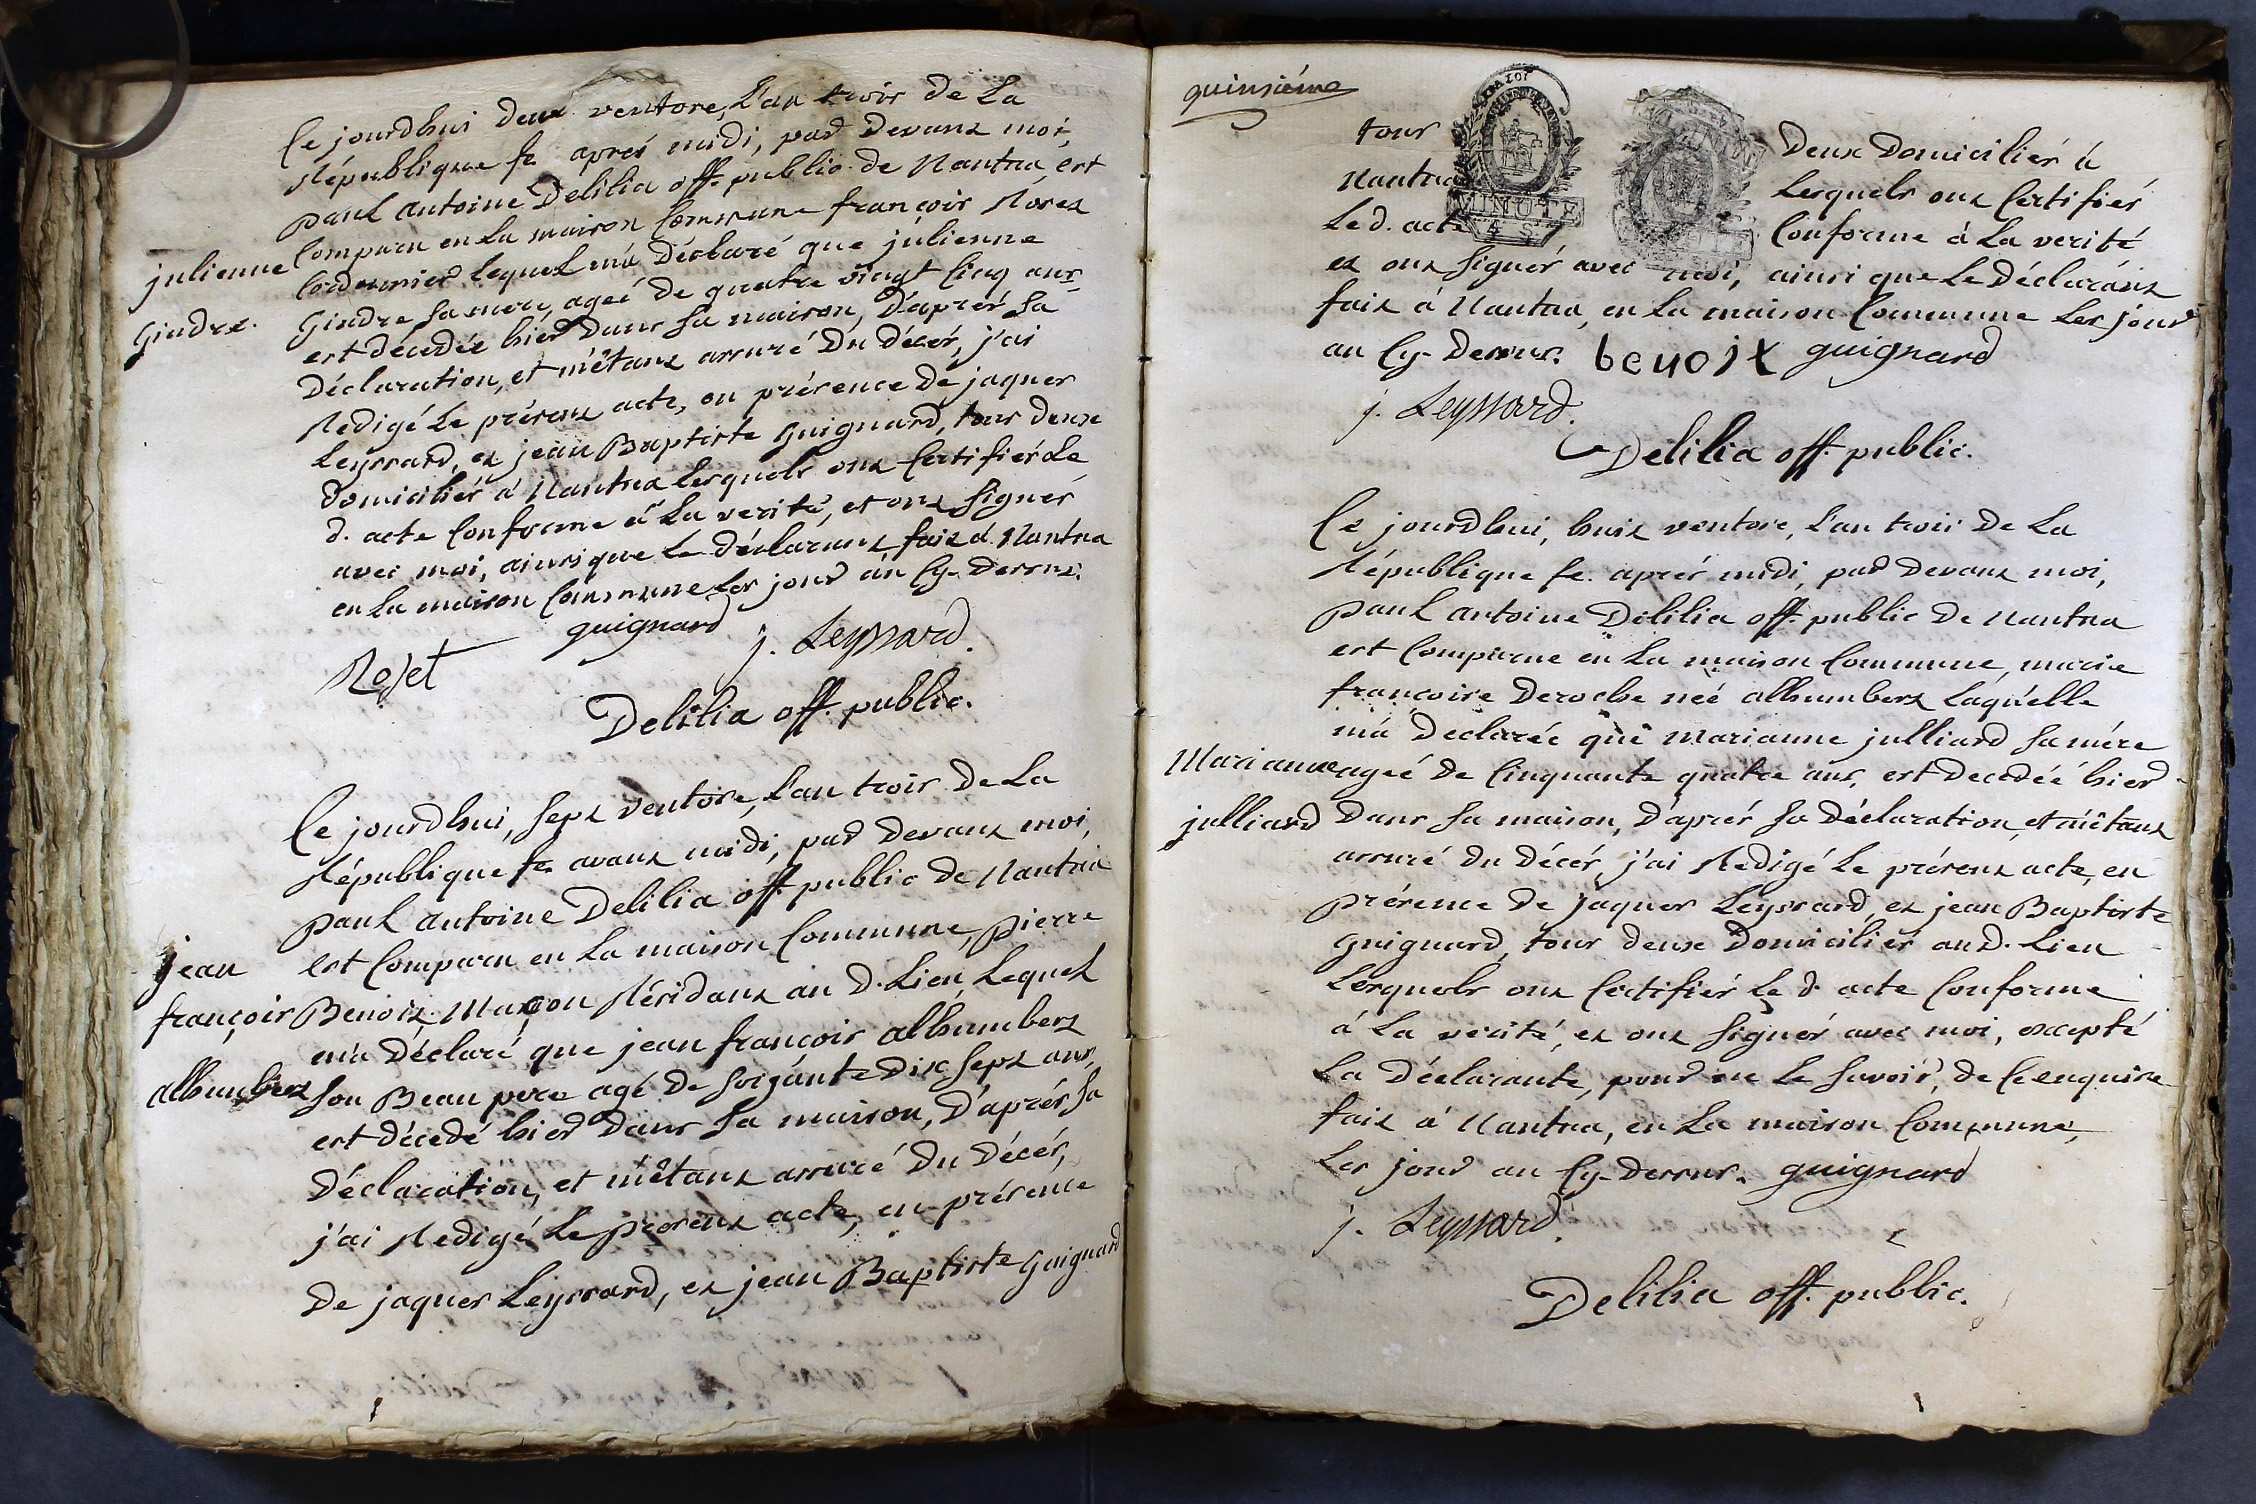 Ce jourdhui deux ventose, l'an trois de la
République fe aprés midi, par devant moi,
paul antoine Delilia off. public de Nantua, est
Comparu en la maison Commune françois Roset
julienne
Gindre.
Cordonnier lequel m'a déclaré que julienne
Gindre sa mere, ageé de quatre vingt Cinq ans
est décedée hier dans sa maison, D'aprés sa
Déclaration, et m'étant assuré Du décés, j'ai
Redigé le présent acte, en présence de jaques
Leyssard, et jean Baptiste Guignard, tous deux
domiciliés á Nantua lesquels ont Certifiés le
d. acte Conforme á la verité, et ont signés
avec moi, ainsi que le déclarant, fait á Nantua
en la maison Commune les jour an Cy-dessus.
guignard
Roset
j. Leyssard.
Delilia off. public.
Ce jourdhui, sept ventose, l'an trois de la
République fe avant midi, par devant moi,
paul antoine Delilia off. public de Nantua
est Comparu en la maison Commune, pierre
jean
françois
alhumbert
Benoit Maçon Résidant au d. lieu, lequel
m'a déclaré que jean francois alhumbert
son Beau pere agé de soizante dix sept ans,
est décedé hier dans sa maison, D'aprés sa
Déclaration, et m'étant assuré du décés,
j'ai Redigé le présent acte, en présence
de jaques Leyssard, et jean Baptiste Guignard
quinsiéme
tous deux domiciliés á
Nantua lesquels ont Certifiés
MINUTE
4 S
le d. acte Conforme á la verité
et ont signés avec moi, ainsi que le déclarant
fait á Nantua, en la maison Commune les jour
an Cy-dessus. benoit guignard
j. Leyssard.
Delilia off. public.
Ce jourdhui, huit ventose, l'an trois de la
République fe. aprés midi, par devant moi,
paul antoine Delilia off. public de Nantua
est Comparue en la maison Commune, marie
françoise Deroche neé alhumbert laquelle
m'á declarée que marianne julliard sa mére
Marianne
julliard
ageé de Cinquante quatre ans, est decedéé hier
dans sa maison, d'aprés sa déclaration, et m'étant
assuré du décés, j'ai Redigé le présent acte, en
présence de jaques Leyssard, et jean Baptiste
Guignard, tous deux domiciliés au d. lieu
lesquels ont Certifiés le d. acte Conforme
á la verité, et ont signés avec moi, excepté
la déclarante, pour ne le savoir, de Ce enquise
fait á Nantua, en la maison Commune,
les jour an Cy-dessus. guignard
j. Leyssard.
Delilia off. public.